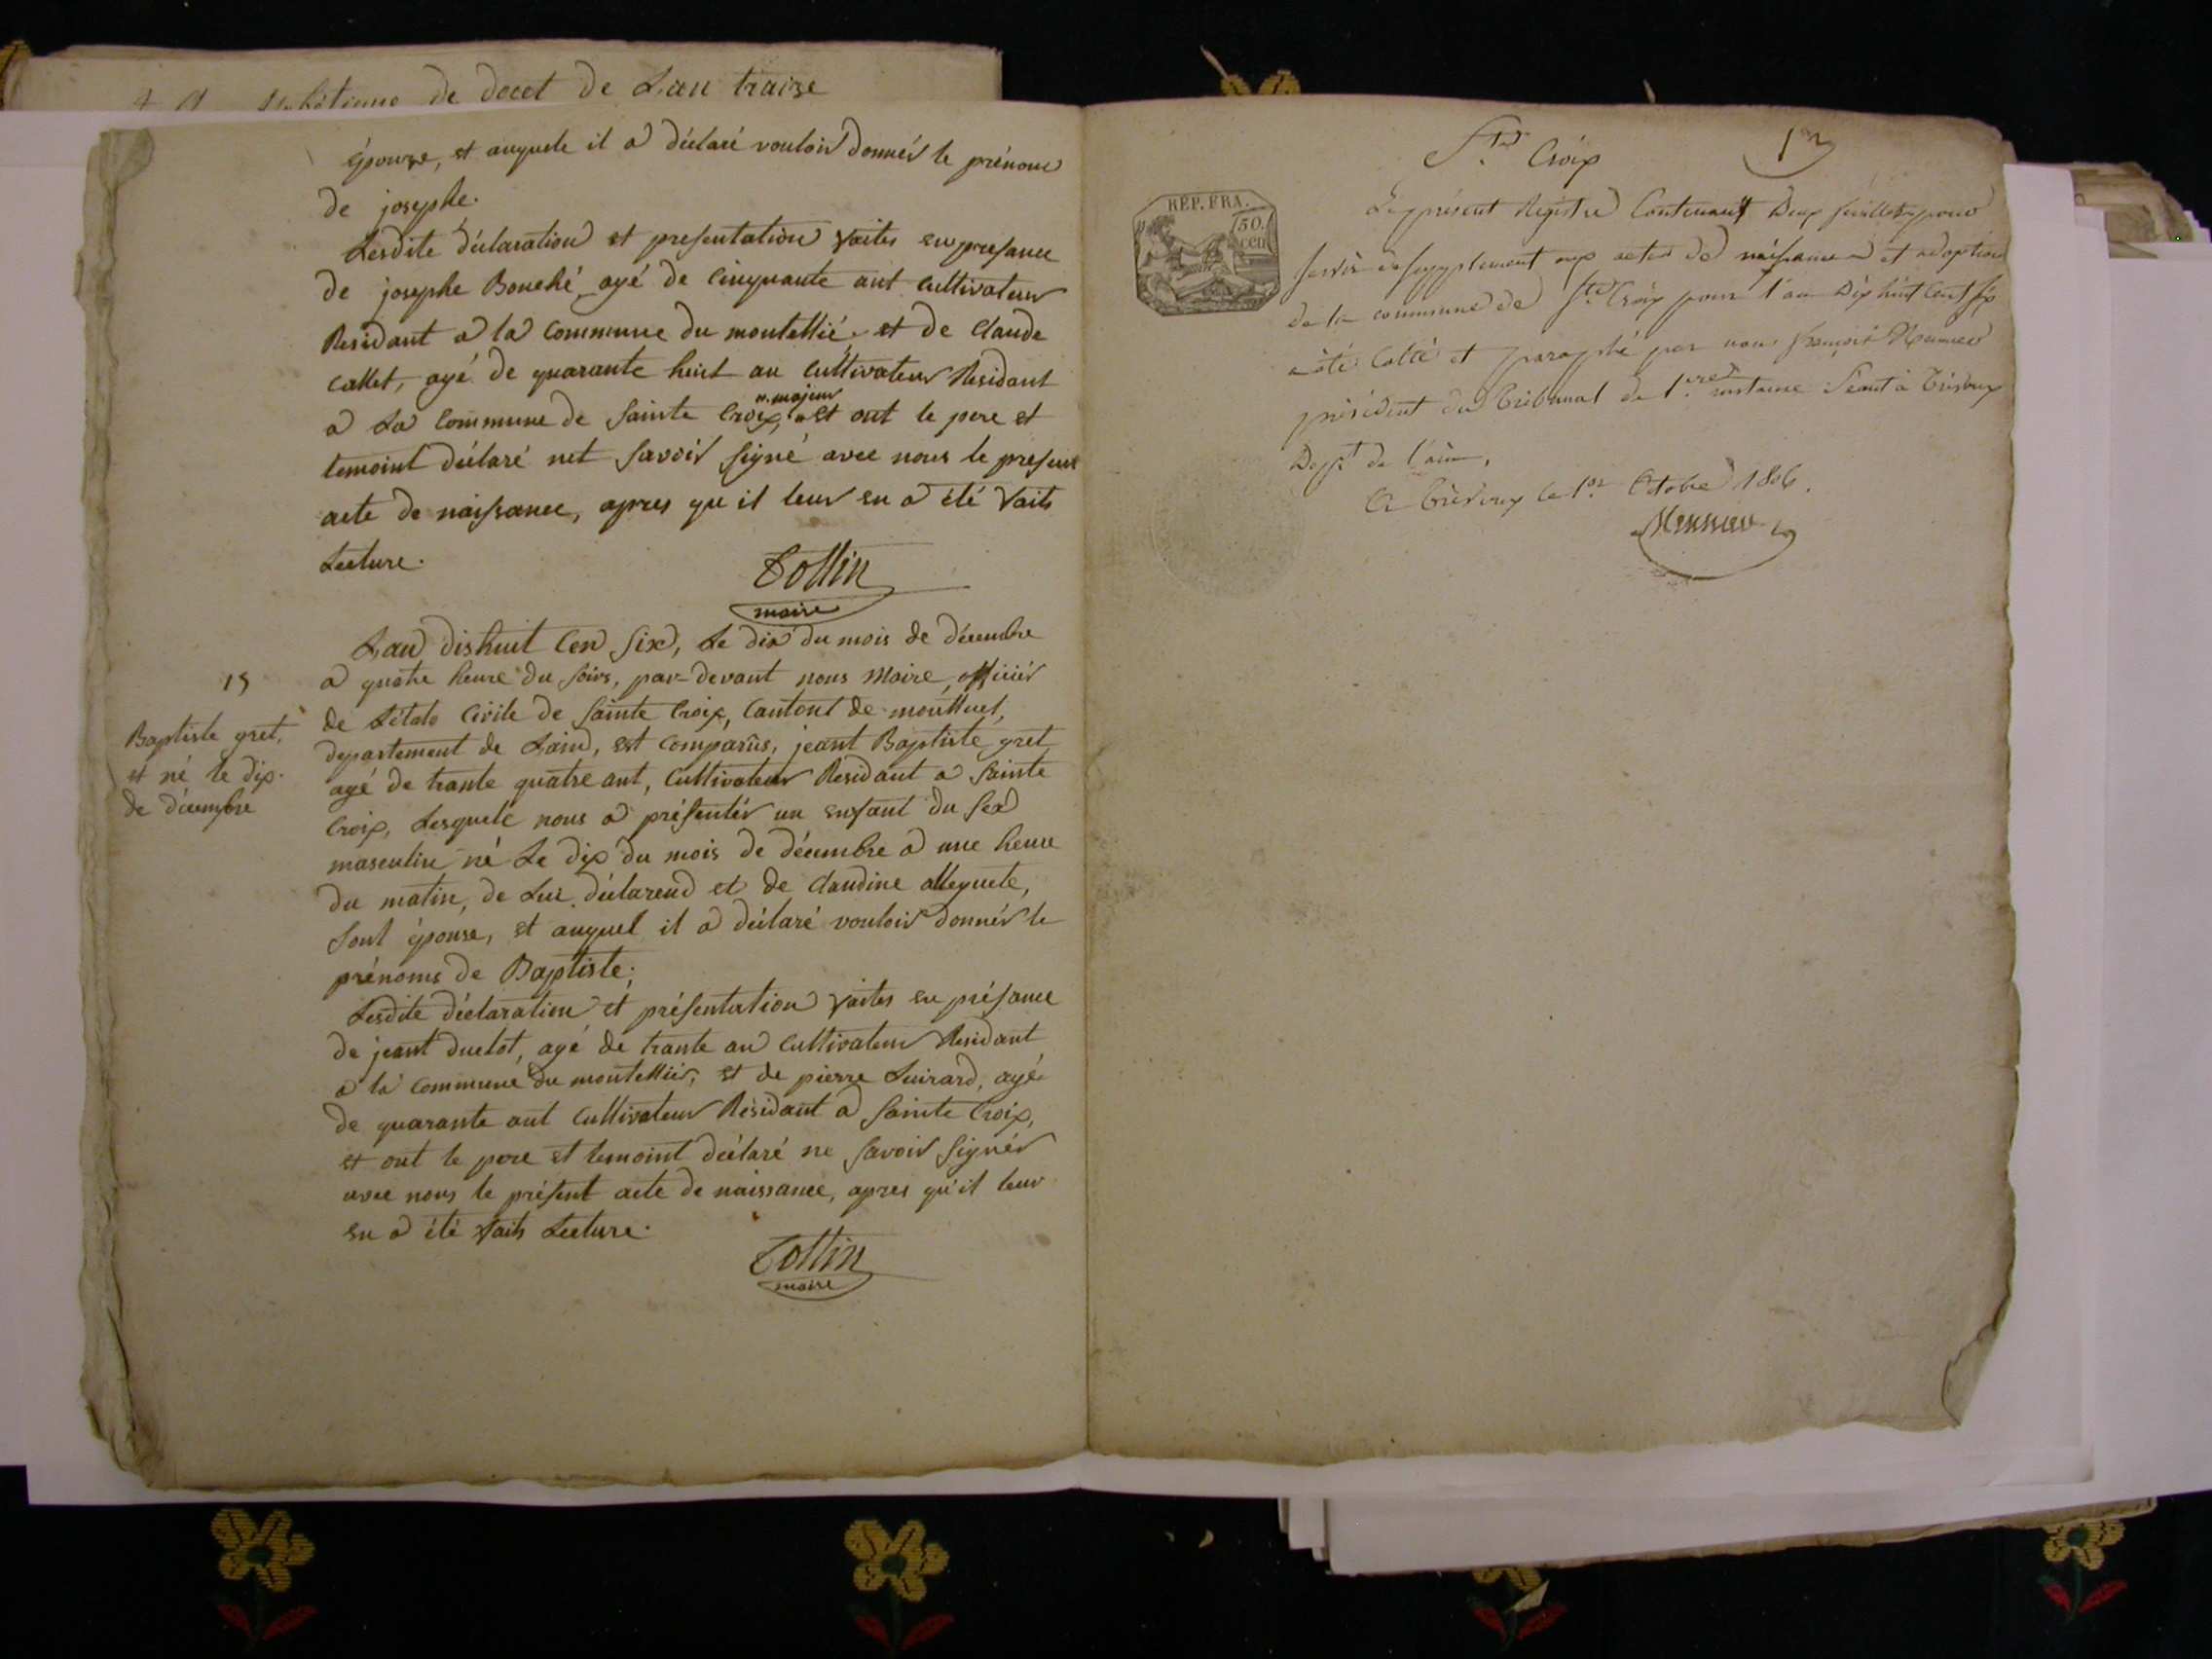 de docet de Lan traize
épouze, et auquele il a déclaré vouloir donnér le prénom
de josephe.
Lesdite déclaration et presentation faites en presance
de josephe Bouché, agé de Cinquante ant cultivateur
Residant a la Commune du montellié, et de Claude
Callet, agé de quarante huit an Cultivateur Residant
a La Commune de Sainte Croix, majeur et ont le pere et
temoint déclaré net Savoir Signé avec nous le present
acte de naissance, apres qu il leur en a été faits
Lecture.
Tollin
maire
Lan dishuit Cen Six, Le dix du mois de décembre
15
a quatre heure du Soirs, par-devant nous Maire, officiér
de L'étate Civile de Sainte Croix, Cantont de montluel,
Baptiste gret,
et né le dix.
de décembre
departement de Laind, est Comparûs, jeant Baptiste gret
agé de trante quatre ant, Cultivateur Residant a Sainte
Croix, Lesquele nous a présentér un enfant du Sex
masculin né Le dix du mois de décembre a une heure
du matin, de Lui déclarend et de Claudine alleynete,
Sont épouse, et auquel il a déclaré vouloir donnér le
prénoms de Baptiste;
Lesdite déclaration et présentation faites en présance
de jeant duclot, agé de trante an Cultivateur Residant
a la Commune du montelliér, et de pierre Suirard, agé
de quarante ant Cultivateur Résidant a Sainte Croix,
et ont le pere et temoint déclaré ne Savoir Signér
avec nous le présent acte de naissance, apres qu'il leur
en a été faits Lecture.
Tollin
maire
Ste Croix
1er
RÉP. FRA.
50.
cen
Le présent Registre Contenant Deux feuillets pour
Servir de Supplement aux actes de naissances et adoption
de la commune de Ste Croix pour l'an Dix huit Cent Six
a été Cotté et paraphé par nous françois
président du tribunal de 1ere instance Séant à Trévoux
Depᵗ de l'ain,
A Trévoux le 1er Octobre 1806.